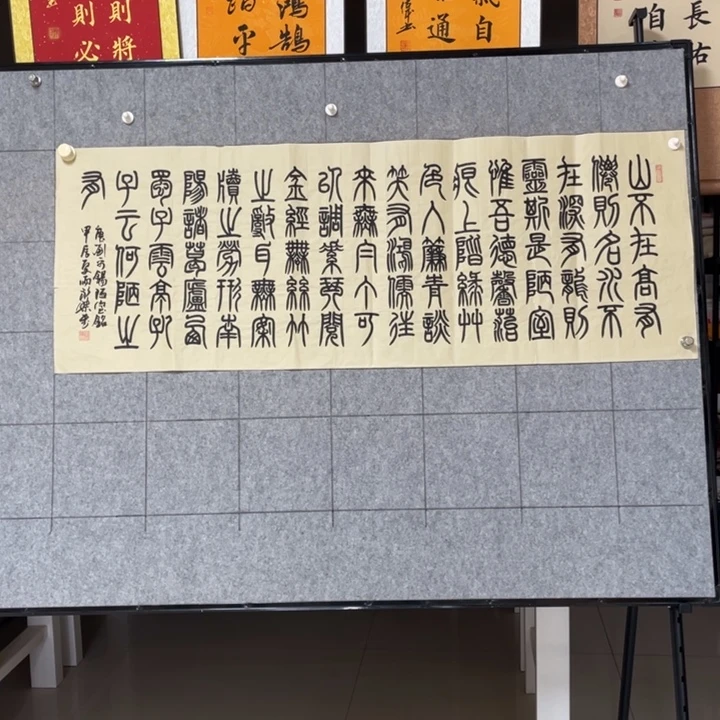 山不在高有
僊則名水不
在深有龍則
靈斯是陋室
惟吾德馨苔
痕上階綠艸
色入簾青談
笑有鴻儒往
來無白丁可
以調素琴閱
金經無絲竹
之亂耳無案
牘之勞形南
陽諸葛廬西
蜀子雲亭孔
子云何陋之
有
唐劉禹錫陋室銘
甲辰夏雨
則將
則必
鴻鵠
平
氣自
通
長祐
自